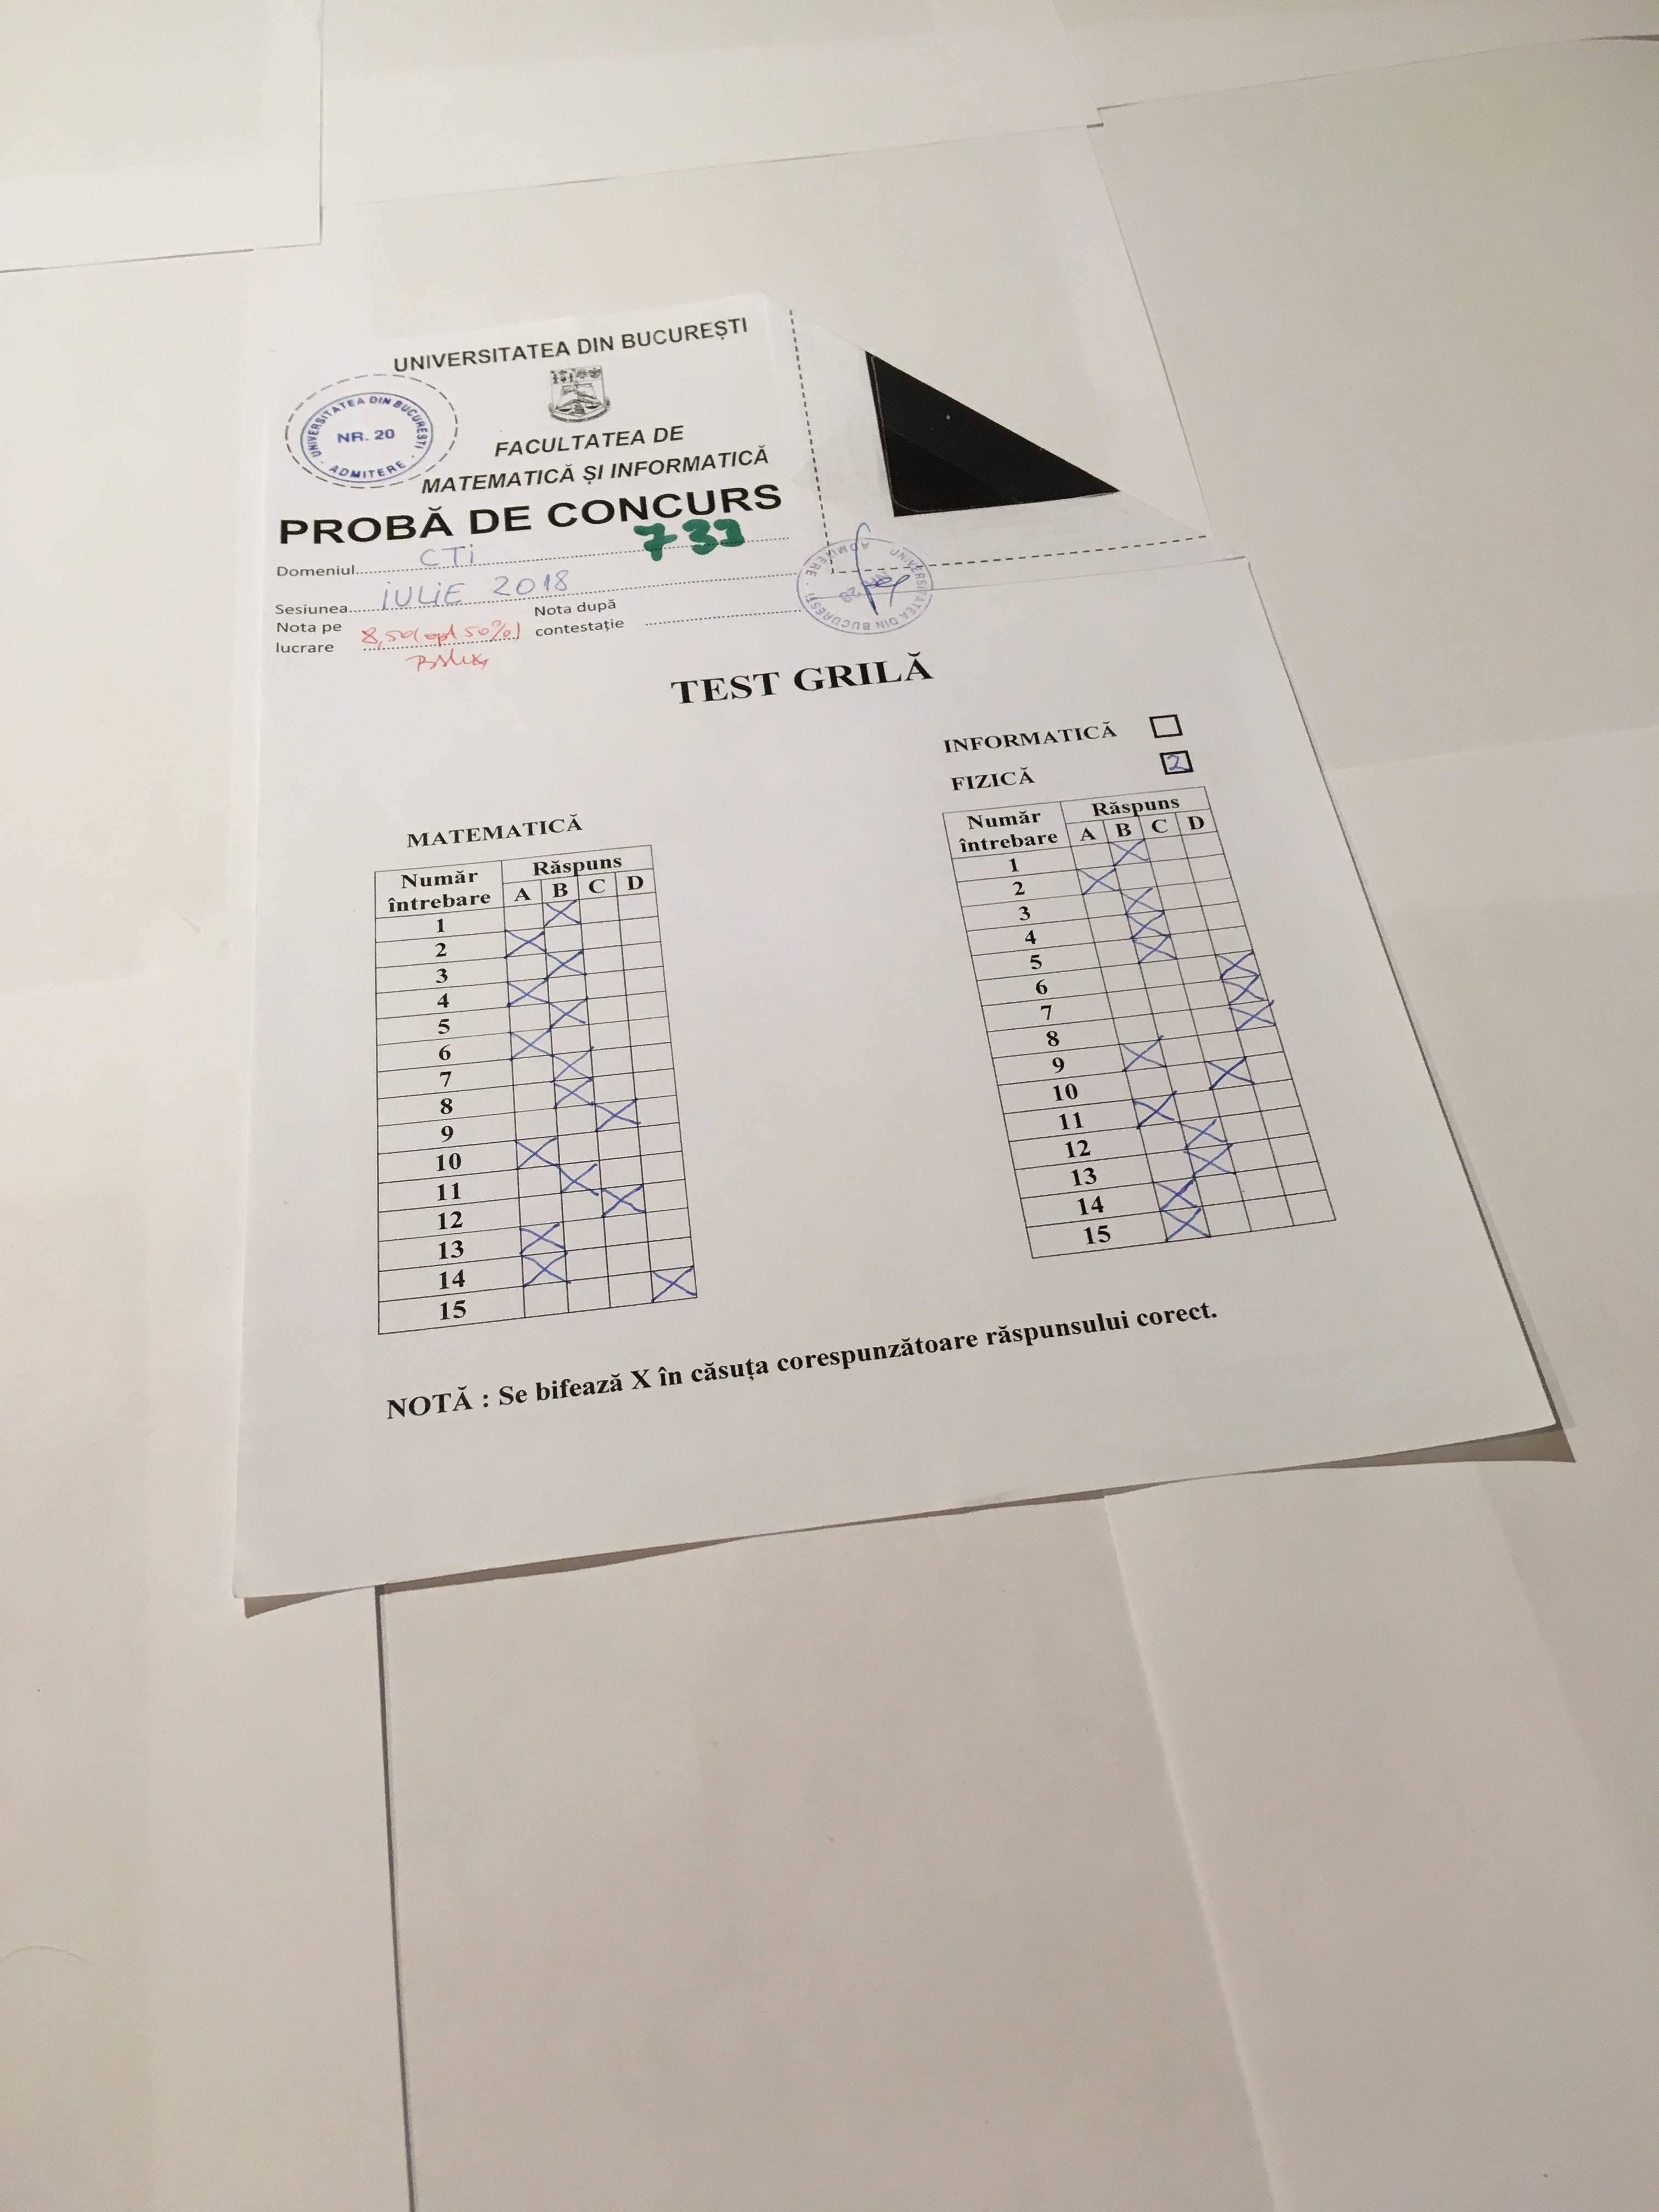 UNIVERSITATEA DIN BUCUREȘTI
UNIVERSITATEA DIN BUCUREȘTI
NR. 20
· ADMITERE ·
FACULTATEA DE
MATEMATICĂ ȘI INFORMATICĂ
PROBĂ DE CONCURS
Domeniul CTi
Sesiunea iULiE 2018
Nota pe lucrare 8,50 (opt 50%)
Nota după contestație
UNIVERSITATEA DIN BUCUREȘTI · ADMITERE
TEST GRILĂ
INFORMATICĂ
FIZICĂ 2
MATEMATICĂ
Număr întrebare Răspuns
A B C D
1 X
2 X
3 X
4 X
5 X
6 X
7 X
8 X
9 X
10 X
11 X
12 X
13 X
14 X
15 X
Număr întrebare Răspuns
A B C D
1 X
2 X
3 X
4 X
5 X
6 X
7 X
8 X
9 X
10 X
11 X
12 X
13 X
14 X
15 X
NOTĂ : Se bifează X în căsuța corespunzătoare răspunsului corect.